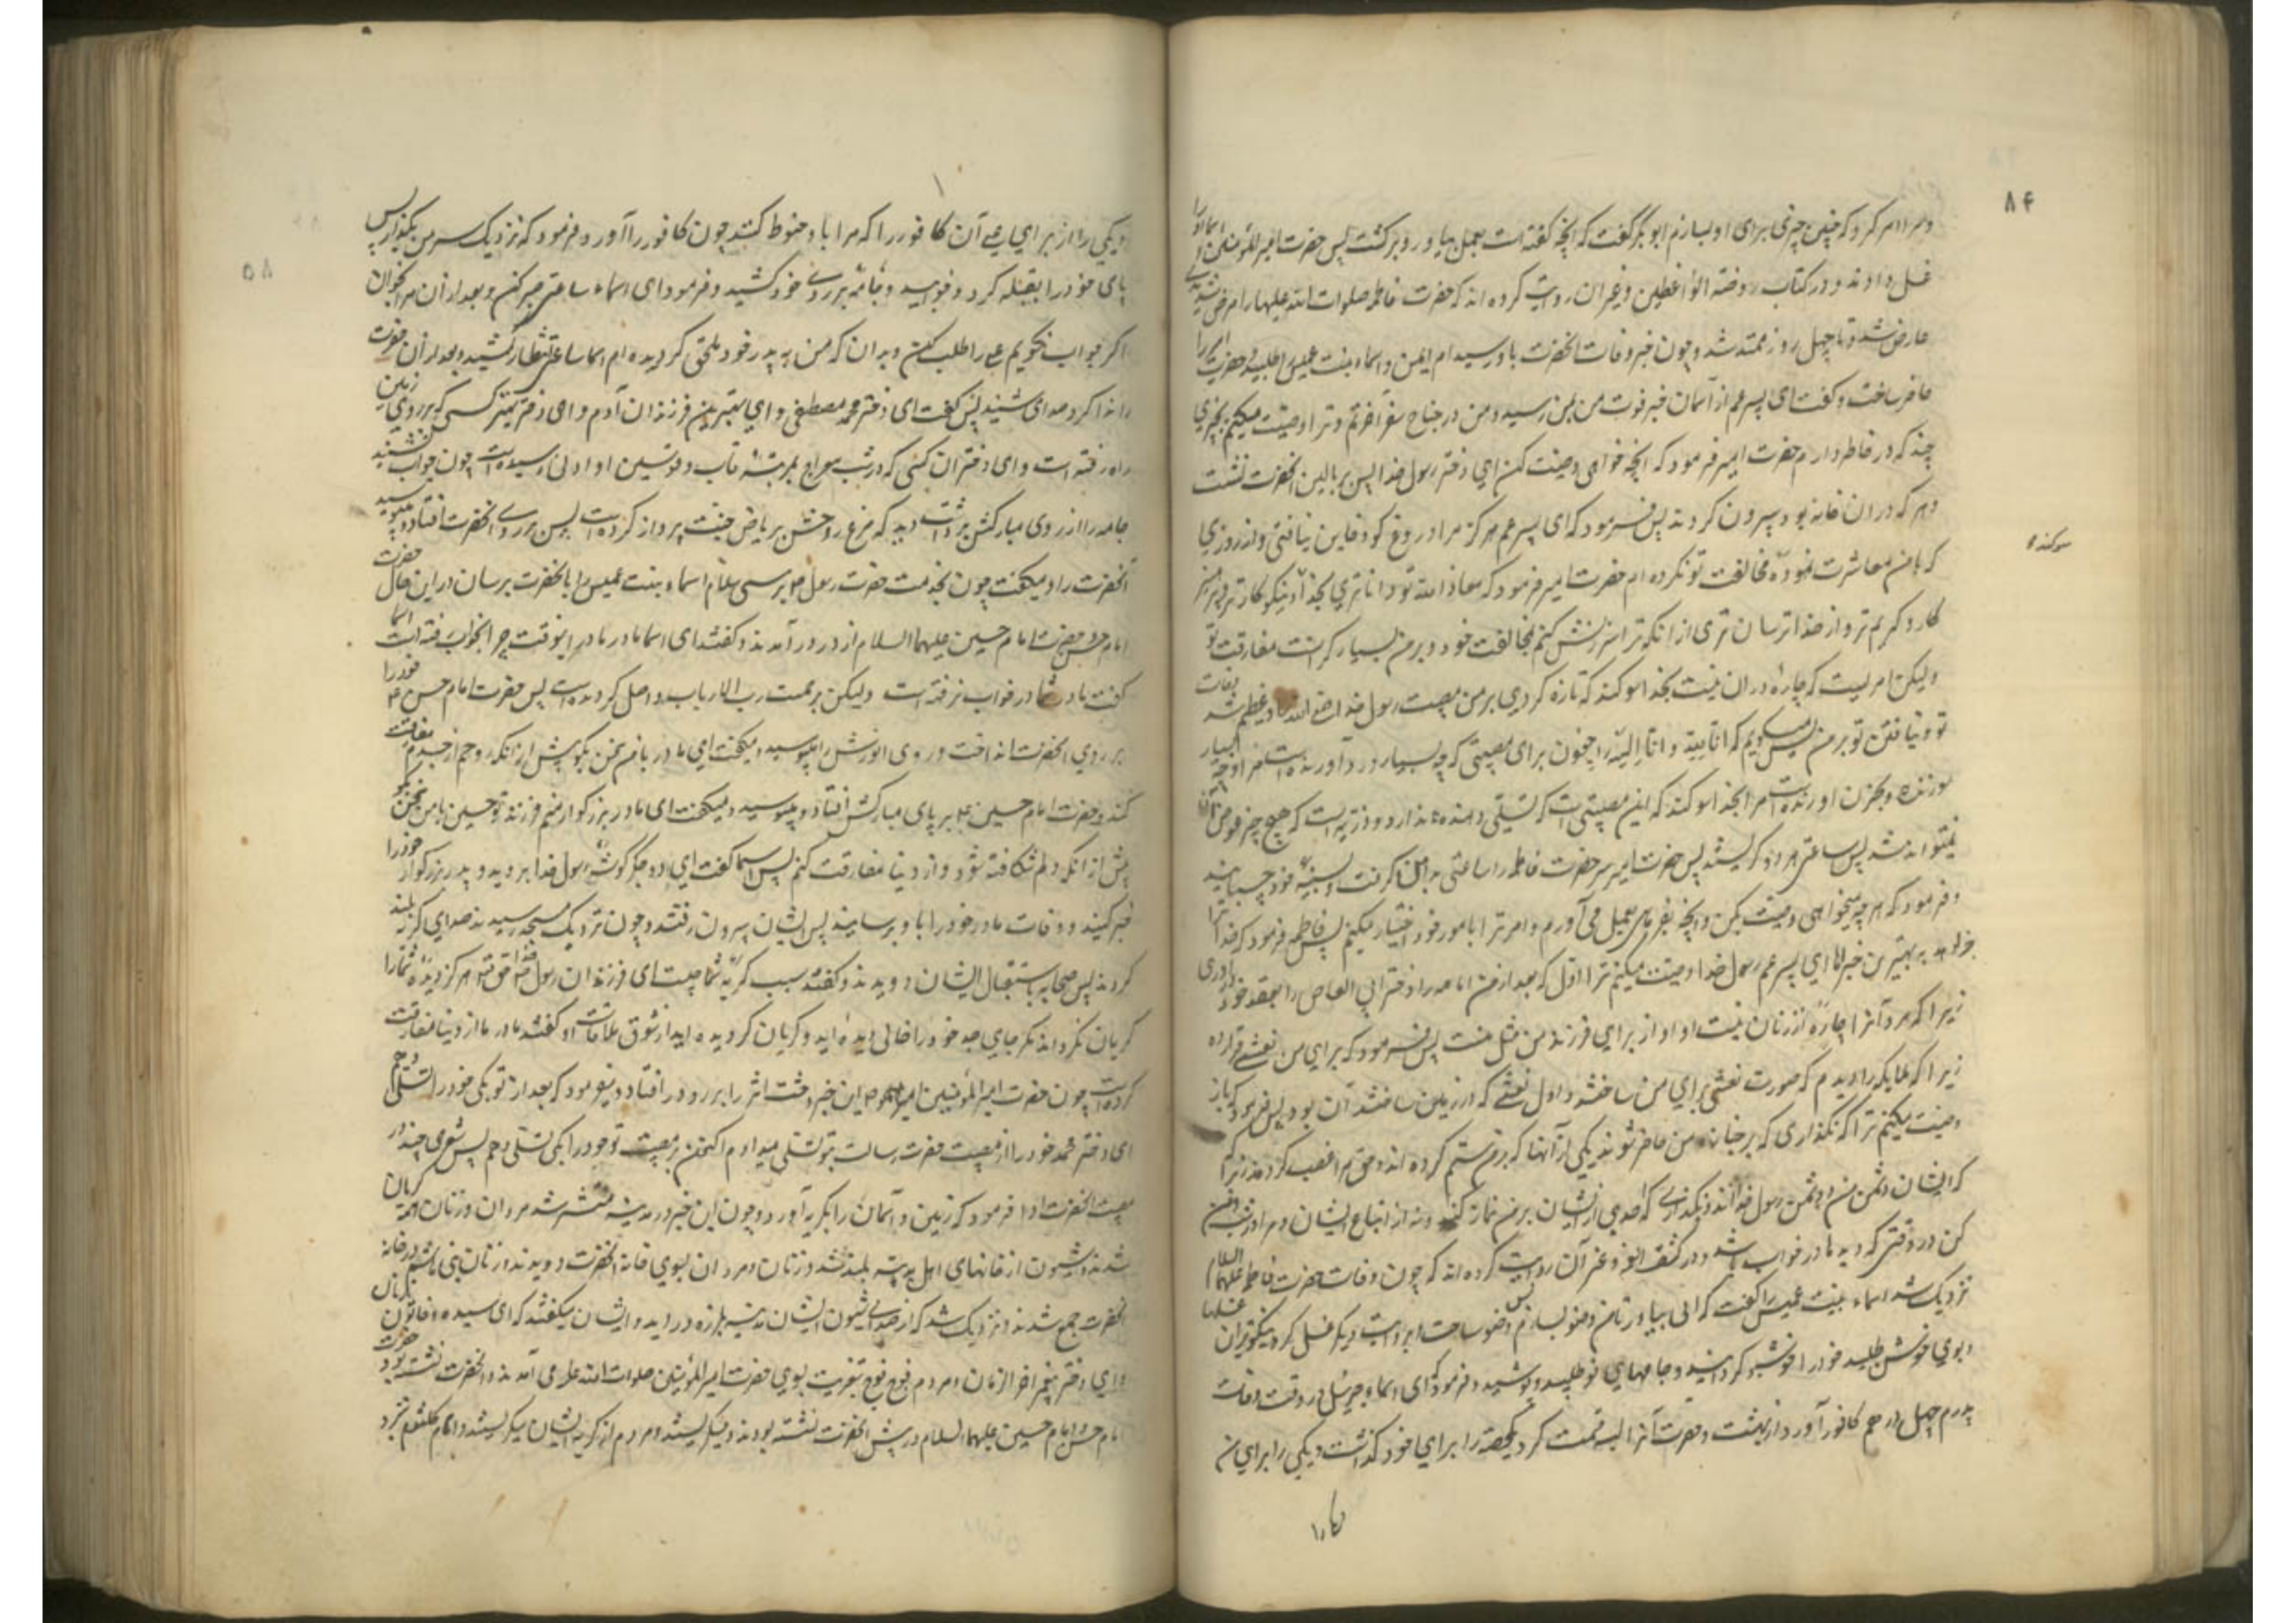 ۸۴
و مرا امر کرد که چنین چیزی برای او بسازم ابوبکر گفت که آنچه گفته است بعمل بیاور و برگشت پس حضرت امیرالمؤمنین و اسماء او را
غسل دادند و در کتاب روضة الواعظین و غیر آن روایت کرده اند که حضرت فاطمه صلوات الله علیها را مرض شدیدی
عارض شد و تا چهل روز ممتد شد و چون خبر وفات آنحضرت باو رسید ام ایمن و اسماء بنت عمیس را طلبید و حضرت امیر را
حاضر ساخت و گفت ای پسر عم از آسمان خبر فوت من بمن رسید و من در جناح سفر آخرتم و ترا وصیت میکنم بچیزی
چند که در خاطر دارم حضرت امیر فرمود که آنچه خواهی وصیت کن ای دختر رسول خدا پس بر بالین آنحضرت نشست
و هر که در آن خانه بود بیرون کردند پس فرمود که ای پسر عم هرگز مرا دروغ گو و خاین نیافتی و از روزی
که با من معاشرت نموده مخالفت تو نکرده ام حضرت امیر فرمود که معاذ الله تو داناتری بخدا و نیکوکارتر و پرهیز
کار و کریم تر و از خدا ترسان تری از آنکه ترا سرزنش کنم بمخالفت خود و بر من بسیار گرانست مفارقت تو
ولیکن امریست که چاره در آن نیست بخدا سوکند که تازه کردی بر من مصیبت رسول خدا را و عظیم شد وفات
تو و نیافتن تو بر من پس میگویم که انا لله و انا الیه راجعون برای مصیبتی که چه بسیار درد آورنده است مرا و چه بسیار
سوزنده و بحزن آورنده است مرا بخدا سوکند که این مصیبتی است که تسلی دهنده ندارد و رزیه ایست که هیچ چیز عوض آن
نمیتواند شد پس ساعتی هر دو گریستند پس حضرت امیر سر حضرت فاطمه را ساعتی بدامن گرفت و بسینه خود چسبانید
و فرمود که هر چه میخواهی وصیت بکن و آنچه بفرمائی بعمل می آورم و امر ترا بامور خود اختیار میکنم پس فاطمه فرمود که خدا ترا
جزا دهد بهترین جزاها ای پسر عم رسول خدا وصیت میکنم ترا اول که بعد از من امامه را دختر ابی العاص را بعقد خود درآوری
زیرا که مرد آنرا چاره از زنان نیست او از برای فرزند من مثل منست پس فرمود که برای من نعشی قرار ده
زیرا که ملائکه را دیدم که صورت نعشی برای من ساختند و اول نعشی که در زمین ساختند آن بود پس فرمود که باز
وصیت میکنم ترا که نگذاری که بر جنازه من حاضر شوند یکی از آنها که بر من ستم کرده اند و حق مرا غصب کردند زیرا که
که ایشان دشمن من و دشمن رسول خدا اند و نگذاری که احدی از ایشان بر من نماز کند و نه از اتباع ایشان و مرا در شب دفن
کن در وقتی که دیدها در خواب باشد و در کشف الغمه و غیر آن روایت کرده اند که چون وفات حضرت فاطمه علیها السلام
نزدیک شد اسماء بنت عمیس را گفت که آبی بیاور تا من وضو بسازم پس وضو ساخت و بروایت دیگر غسل کرد نیکوترین غسلها
و بوی خوش طلبید خود را خوشبو گردانید و جامهای نو طلبید و پوشید و فرمود که ای اسماء جبرئیل در وقت وفات
پدرم چهل درهم کافور آورد از بهشت و حضرت آنرا سه قسمت کرد یکحصه را برای خود گذاشت و یکی را برای من
سوکند
۸۵
و یکی را از برای علی آن کافور را که مرا باو حنوط کنند چون کافور را آورد فرمود که نزدیک سر من بگذار پس
پای خود را بقبله کرد و خوابید و جامه بر روی خود کشید و فرمود ای اسماء ساعتی صبر کن و بعد از آن مرا بخوان
اگر جواب نگویم علی را طلب کن و بدان که من به پدر خود ملحق گردیده ام اسما ساعتی انتظار کشید و بعد از آن حضرت
را ندا کرد صدای نشنید پس گفت ای دختر محمد مصطفی و ای بهترین فرزندان آدم و ای دختر بهتر کسی که بر روی زمین
راه رفته است و ای دختر آن کسی که در شب معراج بمرتبه قاب قوسین او ادنی رسیده است چون جواب نشنید
جامه را از روی مبارکش برداشت دید که مرغ روحش بریاض جنت پرواز کرده است پس بر روی آنحضرت افتاد و میبوسید
آنحضرت را و میگفت چون بخدمت حضرت رسول برسی سلام اسماء بنت عمیس را بآنحضرت برسان در این حال حضرت
امام حسن و حضرت امام حسین علیهما السلام از در در آمدند و گفتند ای اسما مادر ما در اینوقت چرا بخواب رفته است اسما
گفت مادر شما در خواب نرفته است ولیکن برحمت رب الارباب واصل گردیده است پس حضرت امام حسن خود را
بر روی آنحضرت انداخت و روی انورش را میبوسید و میگفت ای مادر با من سخن بگو پیش از آنکه روحم از جسدم مفارقت
کند و حضرت امام حسین بر پای مبارکش افتاد و میبوسید و میگفت ای مادر بزرگوار منم فرزند تو حسین با من سخن بگو
پیش از آنکه دلم شکافته شود و از دنیا مفارقت کنم پس اسما گفت ای دو جگر گوشه رسول خدا بروید و پدر بزرگوار خود را
خبر کنید و وفات مادر خود را باو برسانید پس ایشان بیرون رفتند و چون نزدیک مسجد رسیدند صدای گریه بلند
کردند پس صحابه باستقبال ایشان دویدند و گفتند سبب گریه شما چیست ای فرزندان رسول خدا حق تعالی هرگز دیده شما را
گریان نگرداند مگر جای جد خود را خالی دیده اید و گریان گردیده اید از شوق ملاقات او گفتند مادر ما از دنیا مفارقت
کرده است چون حضرت امیرالمؤمنین این خبر وحشت اثر را بر رو در افتاد و میفرمود که بعد از تو بکی خود را تسلی دهم
ای دختر محمد خود را از مصیبت حضرت رسالت بتو تسلی میدادم اکنون در مصیبت تو خود را بکی تسلی دهم پس شعری چند در
مصیبت آنحضرت ادا فرمود که زمین و آسمان را بگریه آورد و چون این خبر در مدینه منتشر شد مردان و زنان همه گریان
شدند و شیون از خانهای اهل مدینه بلند شد و زنان و مردان بسوی خانه آنحضرت دویدند زنان بنی هاشم در خانه
آنحضرت جمع شدند و نزدیک شد که از صدای شیون ایشان مدینه بلرزه در آید و ایشان میگفتند که ای سیده و خاتون زنان
و ای دختر پیغمبر آخر الزمان و مردم فوج فوج بتعزیت بسوی حضرت امیرالمؤمنین صلوات الله علیه می آمدند و آنحضرت نشسته بود حضرت
امام حسن و امام حسین علیهما السلام در پیش آنحضرت نشسته بودند و میگریستند و مردم از گریه ایشان میگریستند و ام کلثوم بنزد